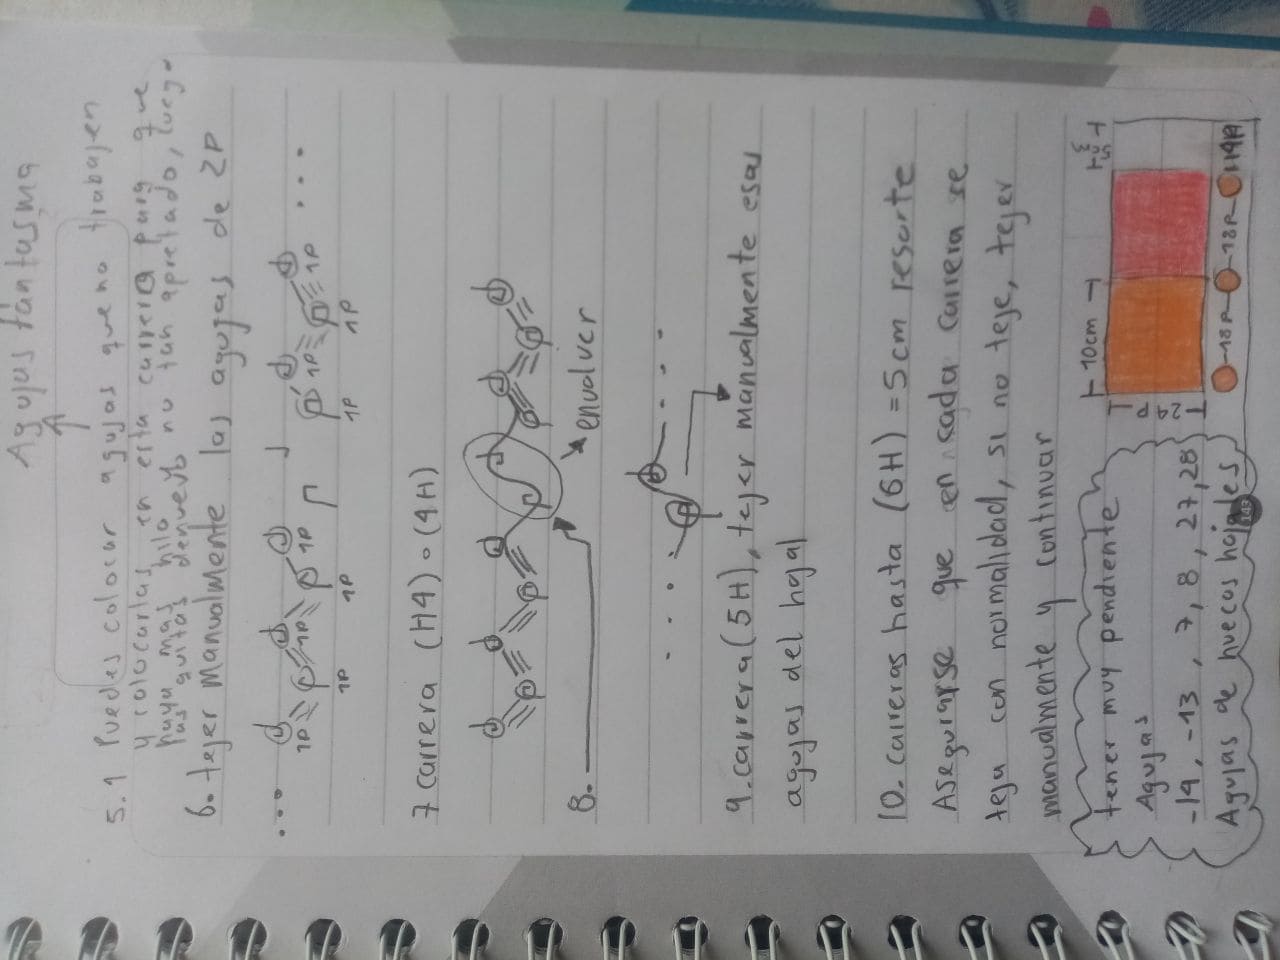 Agujas fantasma
5.1 Puedes colocar agujas que no trabajen
y colocarlas en esta carrera para que
haya mas hilo
las aguitas denuevo no tan apretado, luego
6. tejer manualmente las agujas de 2P
... 1P 1P 1P 1P 1P 1P 1P 1P ...
7 carrera (H4) . (4H)
envolver
8.
9. carrera (5H), tejer manualmente esas
agujas del hojal
10. carreras hasta (6H) = 5cm resorte
Asegurarse que en cada carrera se
teja con normalidad, si no teje, tejer
manualmente y continuar
tener muy pendiente
Agujas
-14, -13, 7, 8, 27, 28
Agujas de huecos hojales
143
10cm
-18P- -18P- 14A